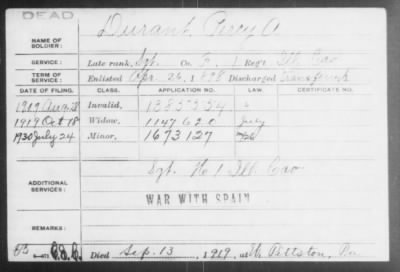 DEAD
NAME OF SOLDIER: Durant, Percy A.
SERVICE: Late rank, Sgt. Co. F, 1 Reg't Ill. Cav
TERM OF SERVICE: Enlisted Apr. 26, 1898 Discharged
DATE OF FILING. CLASS. APPLICATION NO. LAW. CERTIFICATE NO.
1909 Aug 28 Invalid, 1385554
1919 Oct 18 Widow, 1147620 July
1930 July 24 Minor, 1673127
ADDITIONAL SERVICES: Sgt. H 1 Ill. Cav
WAR WITH SPAIN
REMARKS:
Died Sep. 13, 1919, at W. Pittston, Pa